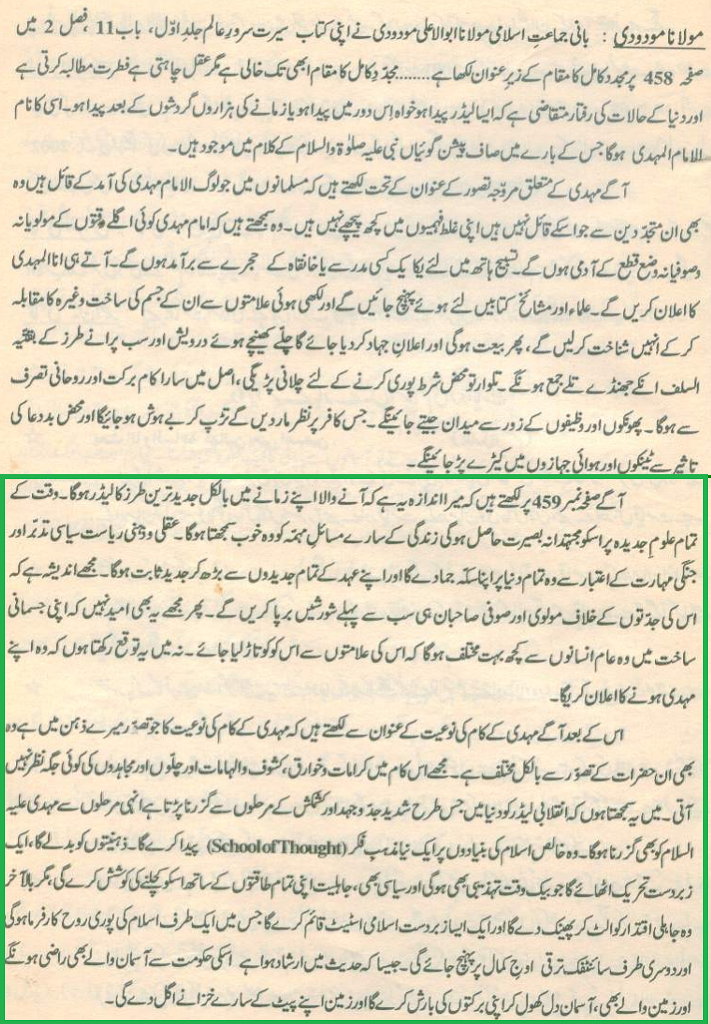 مولانا مودودی : بانی جماعتِ اسلامی مولانا ابوالاعلی مودودی نے اپنی کتاب سیرت سرورِ عالم جلد اوّل، باب 11 ،فصل 2 میں
صفحہ 458 پر مجدد کامل کا مقام کے زیرِ عنوان لکھا ہے........مجدّد کامل کا مقام ابھی تک خالی ہے مگر عقل چاہتی ہے فطرت مطالبہ کرتی ہے
اور دنیا کے حالات کی رفتار متقاضی ہے کہ ایسا لیڈر پیدا ہو خواہ اس دور میں پیدا ہو یا زمانے کی ہزاروں گردشوں کے بعد پیدا ہو۔ اسی کا نام
الامام المہدی ہوگا جس کے بارے میں صاف پیشن گوئیاں نبی علیہ صلوٰۃ والسلام کے کلام میں موجود ہیں۔
آگے مہدی کے متعلق مروّجہ تصور کے عنوان کے تحت لکھتے ہیں کہ مسلمانوں میں جو لوگ الامام مہدی کی آمد کے قائل ہیں وہ
بھی ان متجدّدین سے جو اسکے قائل نہیں ہیں اپنی غلط فہمیوں میں کچھ پیچھے نہیں ہیں۔ وہ سمجھتے ہیں کہ امام مہدی کوئی اگلے وقتوں کے مولویانہ
وصوفیانہ وضع قطع کے آدمی ہوں گے۔ تسبیح ہاتھ میں لئے یکایک کسی مدرسے یا خانقاہ کے حجرے سے برآمد ہوں گے۔ آتے ہی اناالمہدی
کا اعلان کریں گے۔ علماء اور مشائخ کتابیں لئے ہوئے پہنچ جائیں گے اور لکھی ہوئی علامتوں سے ان کے جسم کی ساخت وغیرہ کا مقابلہ
کرکے انہیں شناخت کرلیں گے، پھر بیعت ہوگی اور اعلانِ جہاد کردیا جائے گا چلّے کھینچے ہوئے درویش اور سب پرانے طرز کے بقیّتہ
السلف انکے جھنڈے تلے جمع ہونگے۔ تلوار تو محض شرط پوری کرنے کے لئے چلانی پڑیگی، اصل میں سارا کام برکت اور روحانی تصرف
سے ہوگا۔ پھونکوں اور وظیفوں کے زور سے میدان جیتے جائینگے۔ جس کافر پر نظر ماردیں گے تڑپ کر بے ہوش ہوجائیگا اور محض بددعا کی
تاثیر سے ٹینکوں اور ہوائی جہازوں میں کیڑے پڑ جائینگے۔
آگے صفحہ نمبر 459 پر لکھتے ہیں کہ میرا اندازہ یہ ہے کہ آنے والا اپنے زمانے میں بالکل جدید ترین طرز کا لیڈر ہوگا۔ وقت کے
تمام علومِ جدیدہ پر اسکو مجتہدانہ بصیرت حاصل ہوگی زندگی کے سارے مسائل مہمّہ کو وہ خوب سمجھتا ہوگا۔ عقلی وذہنی ریاست سیاسی تدبّر اور
جنگی مہارت کے اعتبار سے وہ تمام دنیا پر اپنا سکّہ جمادے گا اور اپنے عہد کے تمام جدیدوں سے بڑھ کر جدید ثابت ہوگا۔ مجھے اندیشہ ہے کہ
اس کی جدّتوں کے خلاف مولوی اور صوفی صاحبان ہی سب سے پہلے شورشیں برپا کریں گے۔ پھر مجھے یہ بھی امید نہیں کہ اپنی جسمانی
ساخت میں وہ عام انسانوں سے کچھ بہت مختلف ہوگا کہ اس کی علامتوں سے اس کو کو تاڑ لیا جائے۔ نہ میں یہ توقع رکھتا ہوں کہ وہ اپنے
مہدی ہونے کا اعلان کریگا۔
اس کے بعد آگے مہدی کے کام کی نوعیت کے عنوان سے لکھتے ہیں کہ مہدی کے کام کی نوعیت کا جو تصّور میرے ذہن میں ہے وہ
بھی ان حضرات کے تصّور سے بالکل مختلف ہے۔ مجھے اس کام میں کرامات وخوارق، کشوف والہامات اور چلّوں اور مجاہدوں کی کوئی جگہ نظر نہیں
آتی۔ میں یہ سمجھتا ہوں کہ انقلابی لیڈر کو دنیا میں جس طرح شدید جدّوجہد اور کشمکش کے مرحلوں سے گزرنا پڑتا ہے انہی مرحلوں سے مہدی علیہ
السلام کو بھی گزرنا ہوگا۔ وہ خالص اسلام کی بنیادوں پر ایک نیا مذہبِ فکر (School of Thought) پیدا کرے گا۔ ذہنیتوں کو بدلے گا، ایک
زبردست تحریک اٹھائے گا جو بیک وقت تہذیبی بھی ہوگی اور سیاسی بھی، جاہلیت اپنی تمام طاقتوں کے ساتھ اسکو کچلنے کی کوشش کرے گی، مگر بالآخر
وہ جاہلی اقتدار کو الٹ کر پھینک دے گا اور ایک ایسا زبردست اسلامی اسٹیٹ قائم کرے گا جس میں ایک طرف اسلام کی پوری روح کارفرما ہوگی
اور دوسری طرف سائنٹفک ترقی اوجِ کمال پر پہنچ جائے گی۔ جیسا کہ حدیث میں ارشاد ہوا ہے اسکی حکومت سے آسمان والے بھی راضی ہونگے
اور زمین والے بھی، آسمان دل کھول کر اپنی برکتوں کی بارش کرے گا اور زمین اپنے پیٹ کے سارے خزانے اگل دے گی۔